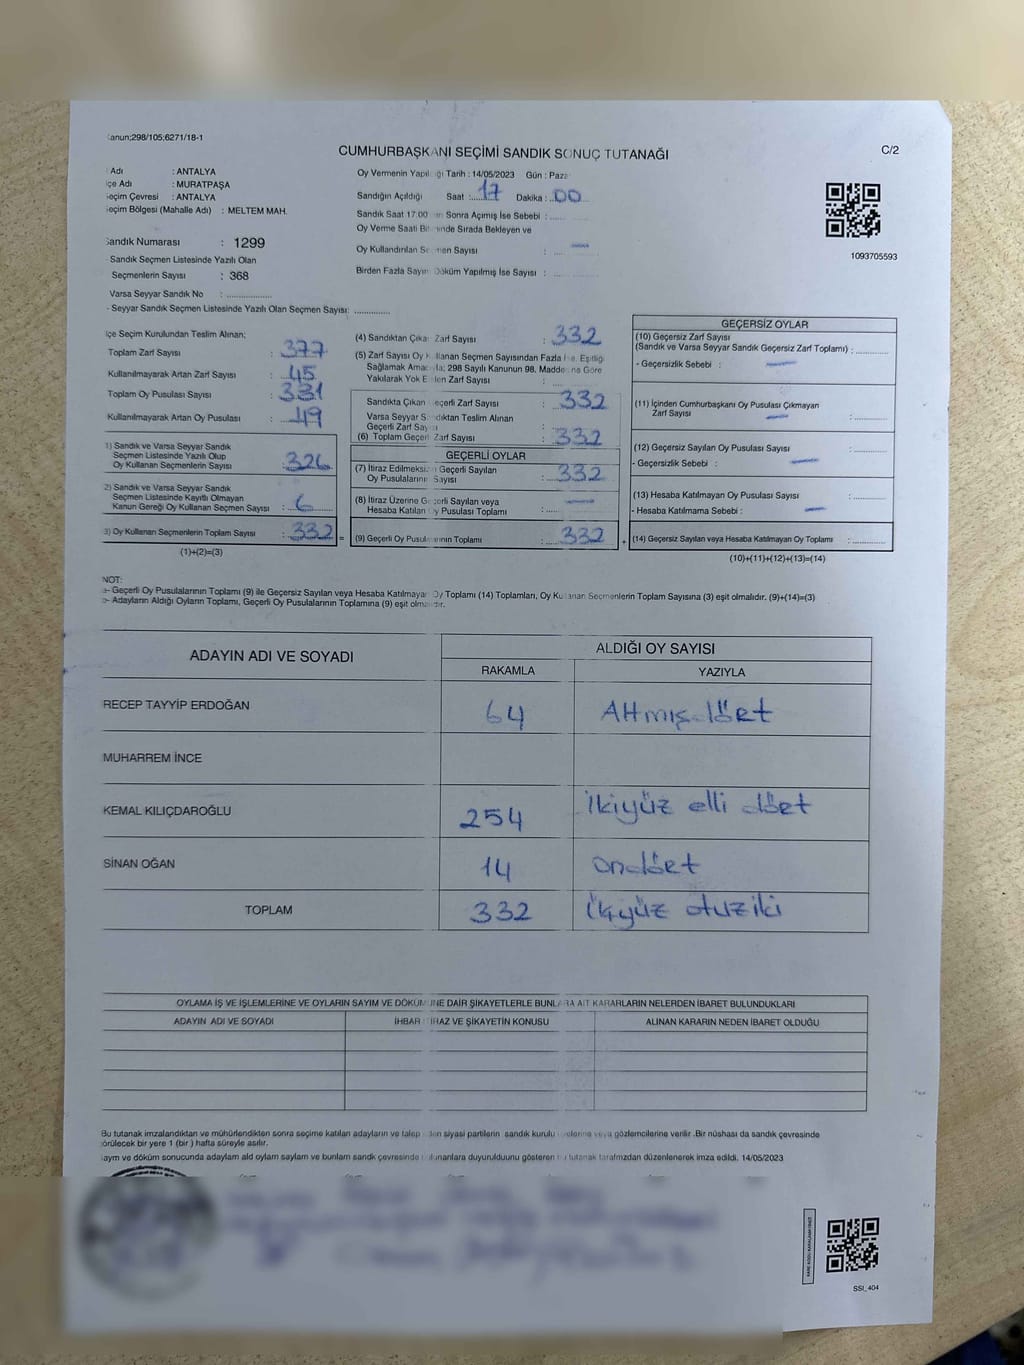 Kanun;298/105;6271/18-1
CUMHURBAŞKANI SEÇİMİ SANDIK SONUÇ TUTANAĞI
C/2
Adı : ANTALYA
İlçe Adı : MURATPAŞA
Seçim Çevresi : ANTALYA
Seçim Bölgesi (Mahalle Adı) : MELTEM MAH.
Oy Vermenin Yapıldığı Tarih : 14/05/2023 Gün : Pazar
Sandığın Açıldığı Saat :....17 Dakika :..00
Sandık Saat 17:00 Sonra Açımış İse Sebebi :
Oy Verme Saati Bitiminde Sırada Bekleyen ve
Oy Kullandırılan Seçmen Sayısı : —
Birden Fazla Sayım Döküm Yapılmış İse Sayısı :
1093705593
Sandık Numarası : 1299
- Sandık Seçmen Listesinde Yazılı Olan
Seçmenlerin Sayısı : 368
Varsa Seyyar Sandık No : ..................
- Seyyar Sandık Seçmen Listesinde Yazılı Olan Seçmen Sayısı: ..............
İlçe Seçim Kurulundan Teslim Alınan;
Toplam Zarf Sayısı : 377
Kullanılmayarak Artan Zarf Sayısı : 45
Toplam Oy Pusulası Sayısı : 381
Kullanılmayarak Artan Oy Pusulası : 49
1) Sandık ve Varsa Seyyar Sandık
Seçmen Listesinde Yazılı Olup
Oy Kullanan Seçmenlerin Sayısı : 326
2) Sandık ve Varsa Seyyar Sandık
Seçmen Listesinde Kayıtlı Olmayan
Kanun Gereği Oy Kullanan Seçmen Sayısı : 6
3) Oy Kullanan Seçmenlerin Toplam Sayısı : 332 =
(1)+(2)=(3)
(4) Sandıktan Çıkan Zarf Sayısı : 332
(5) Zarf Sayısı Oy Kullanan Seçmen Sayısından Fazla İse, Eşitliği
Sağlamak Amacıyla; 298 Sayılı Kanunun 98. Maddesine Göre
Yakılarak Yok Edilen Zarf Sayısı :
Sandıkta Çıkan Geçerli Zarf Sayısı : 332
Varsa Seyyar Sandıktan Teslim Alınan
Geçerli Zarf Sayısı :
(6) Toplam Geçerli Zarf Sayısı : 332
GEÇERLİ OYLAR
(7) İtiraz Edilmeksizin Geçerli Sayılan
Oy Pusulalarının Sayısı : 332
(8) İtiraz Üzerine Geçerli Sayılan veya
Hesaba Katılan Oy Pusulası Toplamı : —
(9) Geçerli Oy Pusulalarının Toplamı : 332 +
GEÇERSİZ OYLAR
(10) Geçersiz Zarf Sayısı
(Sandık ve Varsa Seyyar Sandık Geçersiz Zarf Toplamı) : ............
- Geçersizlik Sebebi : —
(11) İçinden Cumhurbaşkanı Oy Pusulası Çıkmayan
Zarf Sayısı — : ............
(12) Geçersiz Sayılan Oy Pusulası Sayısı : ............
- Geçersizlik Sebebi : —
(13) Hesaba Katılmayan Oy Pusulası Sayısı : ............
- Hesaba Katılmama Sebebi : —
(14) Geçersiz Sayılan veya Hesaba Katılmayan Oy Toplamı : ............
(10)+(11)+(12)+(13)=(14)
NOT:
a- Geçerli Oy Pusulalarının Toplamı (9) ile Geçersiz Sayılan veya Hesaba Katılmayan Oy Toplamı (14) Toplamları, Oy Kullanan Seçmenlerin Toplam Sayısına (3) eşit olmalıdır. (9)+(14)=(3)
b- Adayların Aldığı Oyların Toplamı, Geçerli Oy Pusulalarının Toplamına (9) eşit olmalıdır.
ADAYIN ADI VE SOYADI
ALDIĞI OY SAYISI
RAKAMLA YAZIYLA
RECEP TAYYİP ERDOĞAN 64 Altmış dört
MUHARREM İNCE
KEMAL KILIÇDAROĞLU 254 İkiyüz elli dört
SİNAN OĞAN 14 ondört
TOPLAM 332 İkiyüz otuziki
OYLAMA İŞ VE İŞLEMLERİNE VE OYLARIN SAYIM VE DÖKÜMÜNE DAİR ŞİKAYETLERLE BUNLARA AİT KARARLARIN NELERDEN İBARET BULUNDUKLARI
ADAYIN ADI VE SOYADI İHBAR İTİRAZ VE ŞİKAYETİN KONUSU ALINAN KARARIN NEDEN İBARET OLDUĞU
Bu tutanak imzalandıktan ve mühürlendikten sonra seçime katılan adayların ve talep eden siyasi partilerin sandık kurulu üyelerine veya gözlemcilerine verilir .Bir nüshası da sandık çevresinde
görülecek bir yere 1 (bir ) hafta süreyle asılır.
Sayım ve döküm sonucunda adayların aldığı oyların sayılarını ve bunların sandık çevresinde bulunanlara duyurulduğunu gösteren bu tutanak tarafımızdan düzenlenerek imza edildi. 14/05/2023
SSI_404